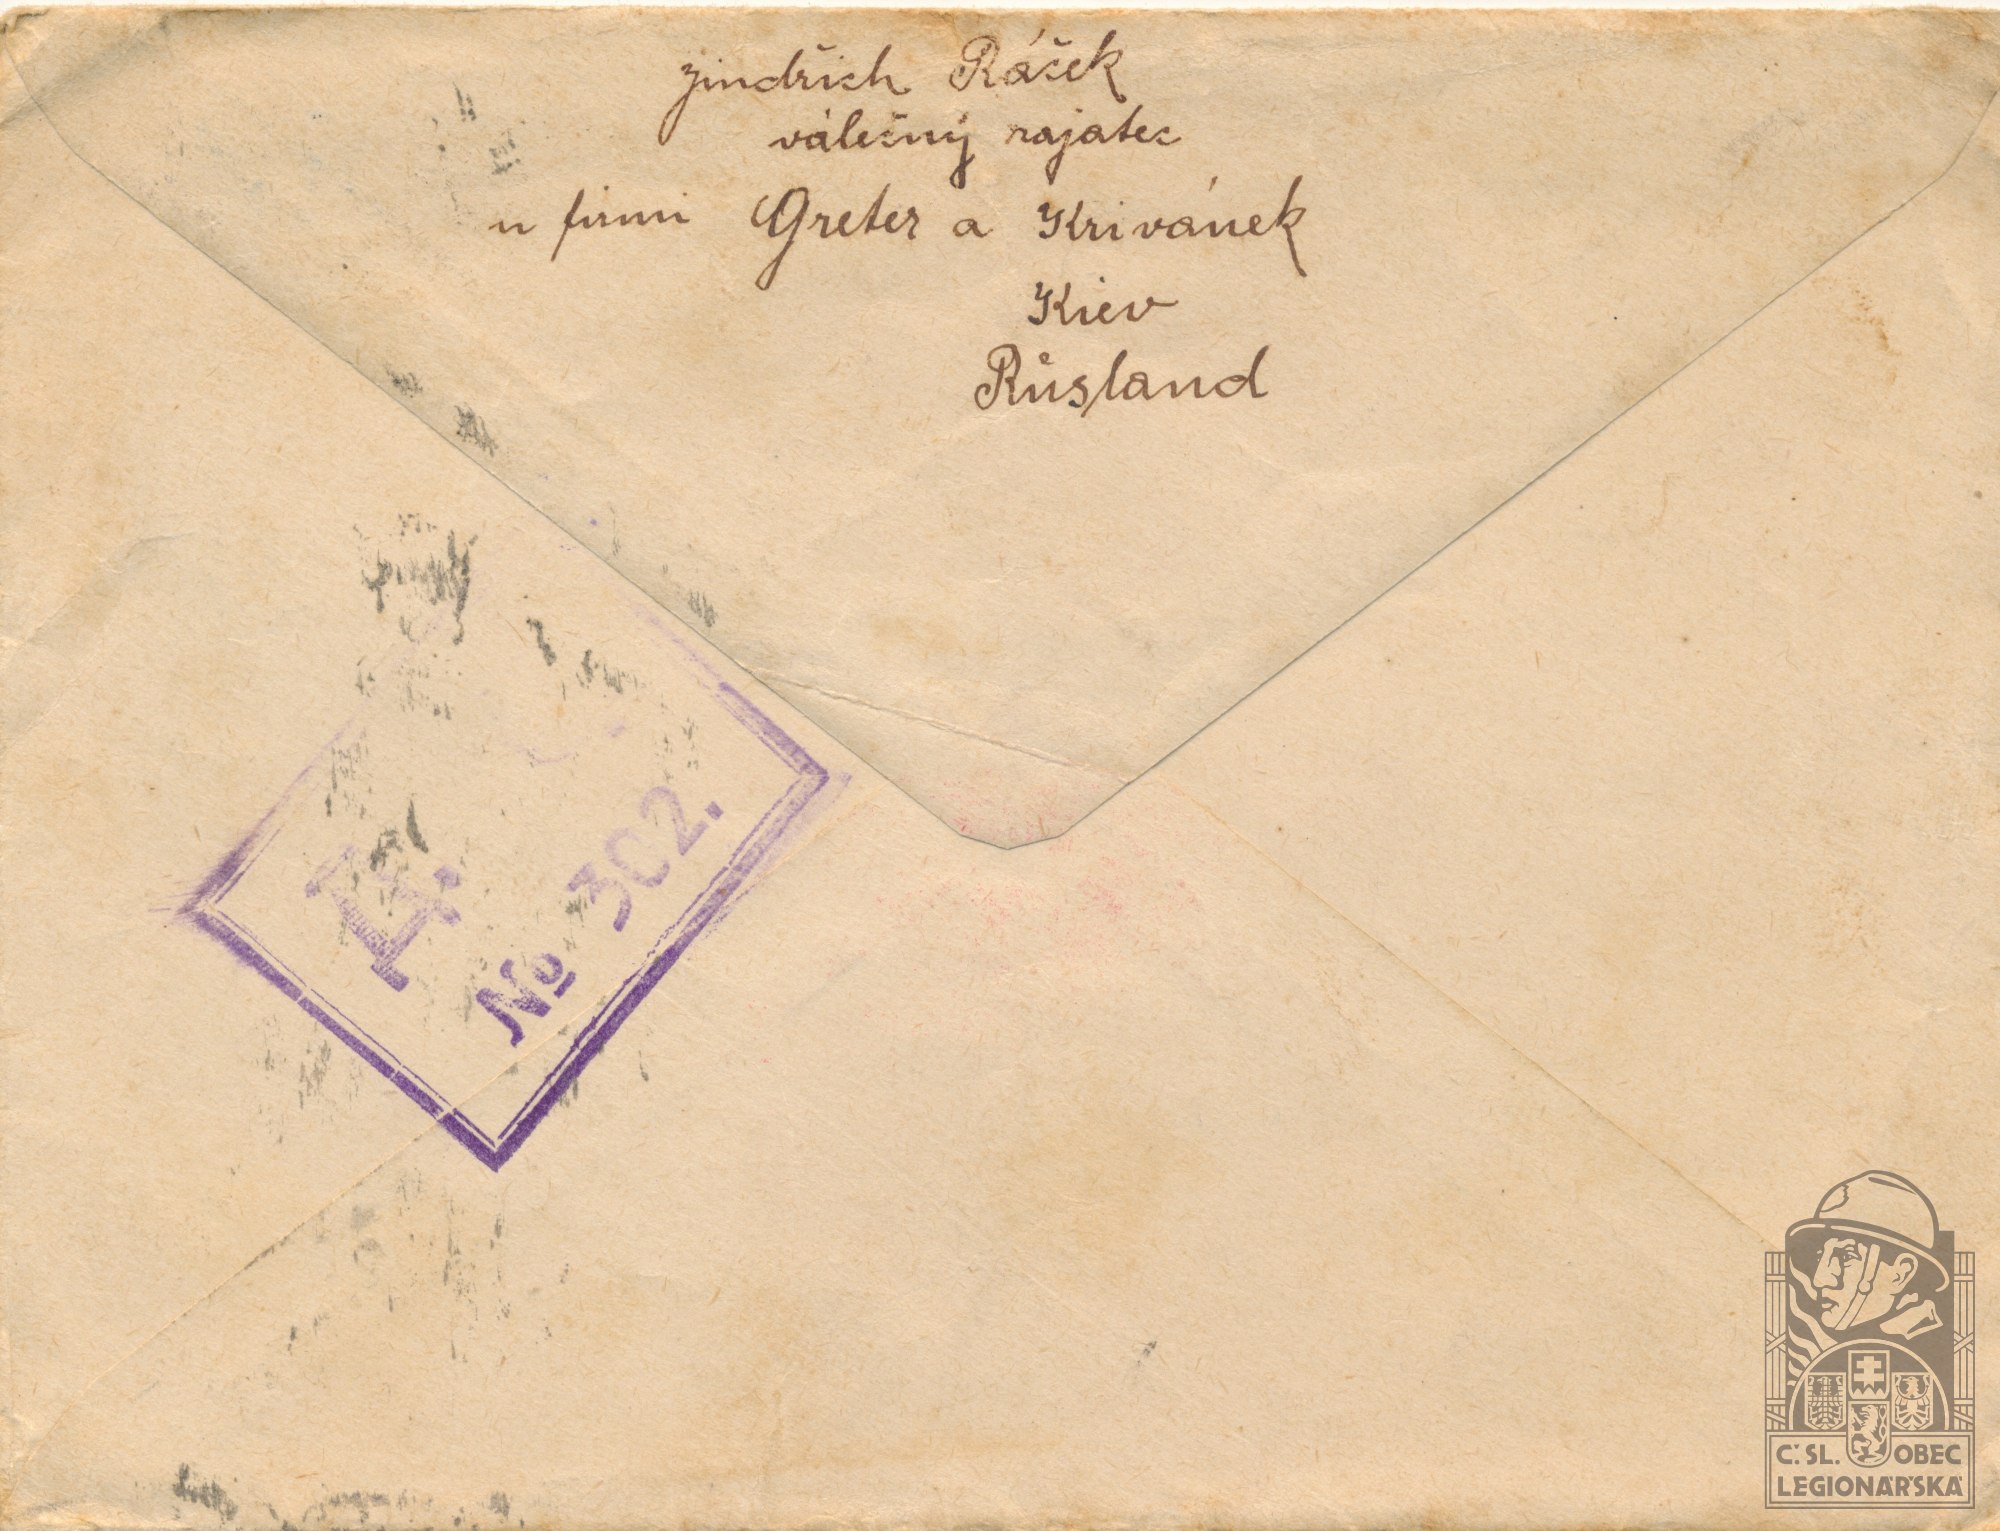 Jindřich Rášek
válečný zajatec
u firmi Greter a Krivánek
Kiev
Růsland
Д.
№ 302.
Č. SL. OBEC
LEGIONÁŘSKÁ